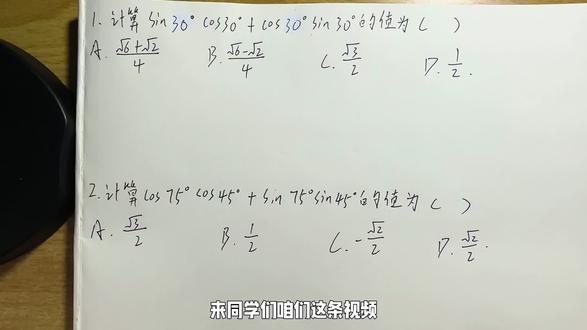 1. 计算 sin30° cos30° + cos30° sin30° 的值为 ( )
A. (√6+√2)/4 B. (√6-√2)/4 C. √3/2 D. 1/2.
2. 计算 cos75° cos45° + sin75° sin45° 的值为 ( )
A. √3/2 B. 1/2 C. -√2/2 D. √2/2.
来同学们咱们这条视频